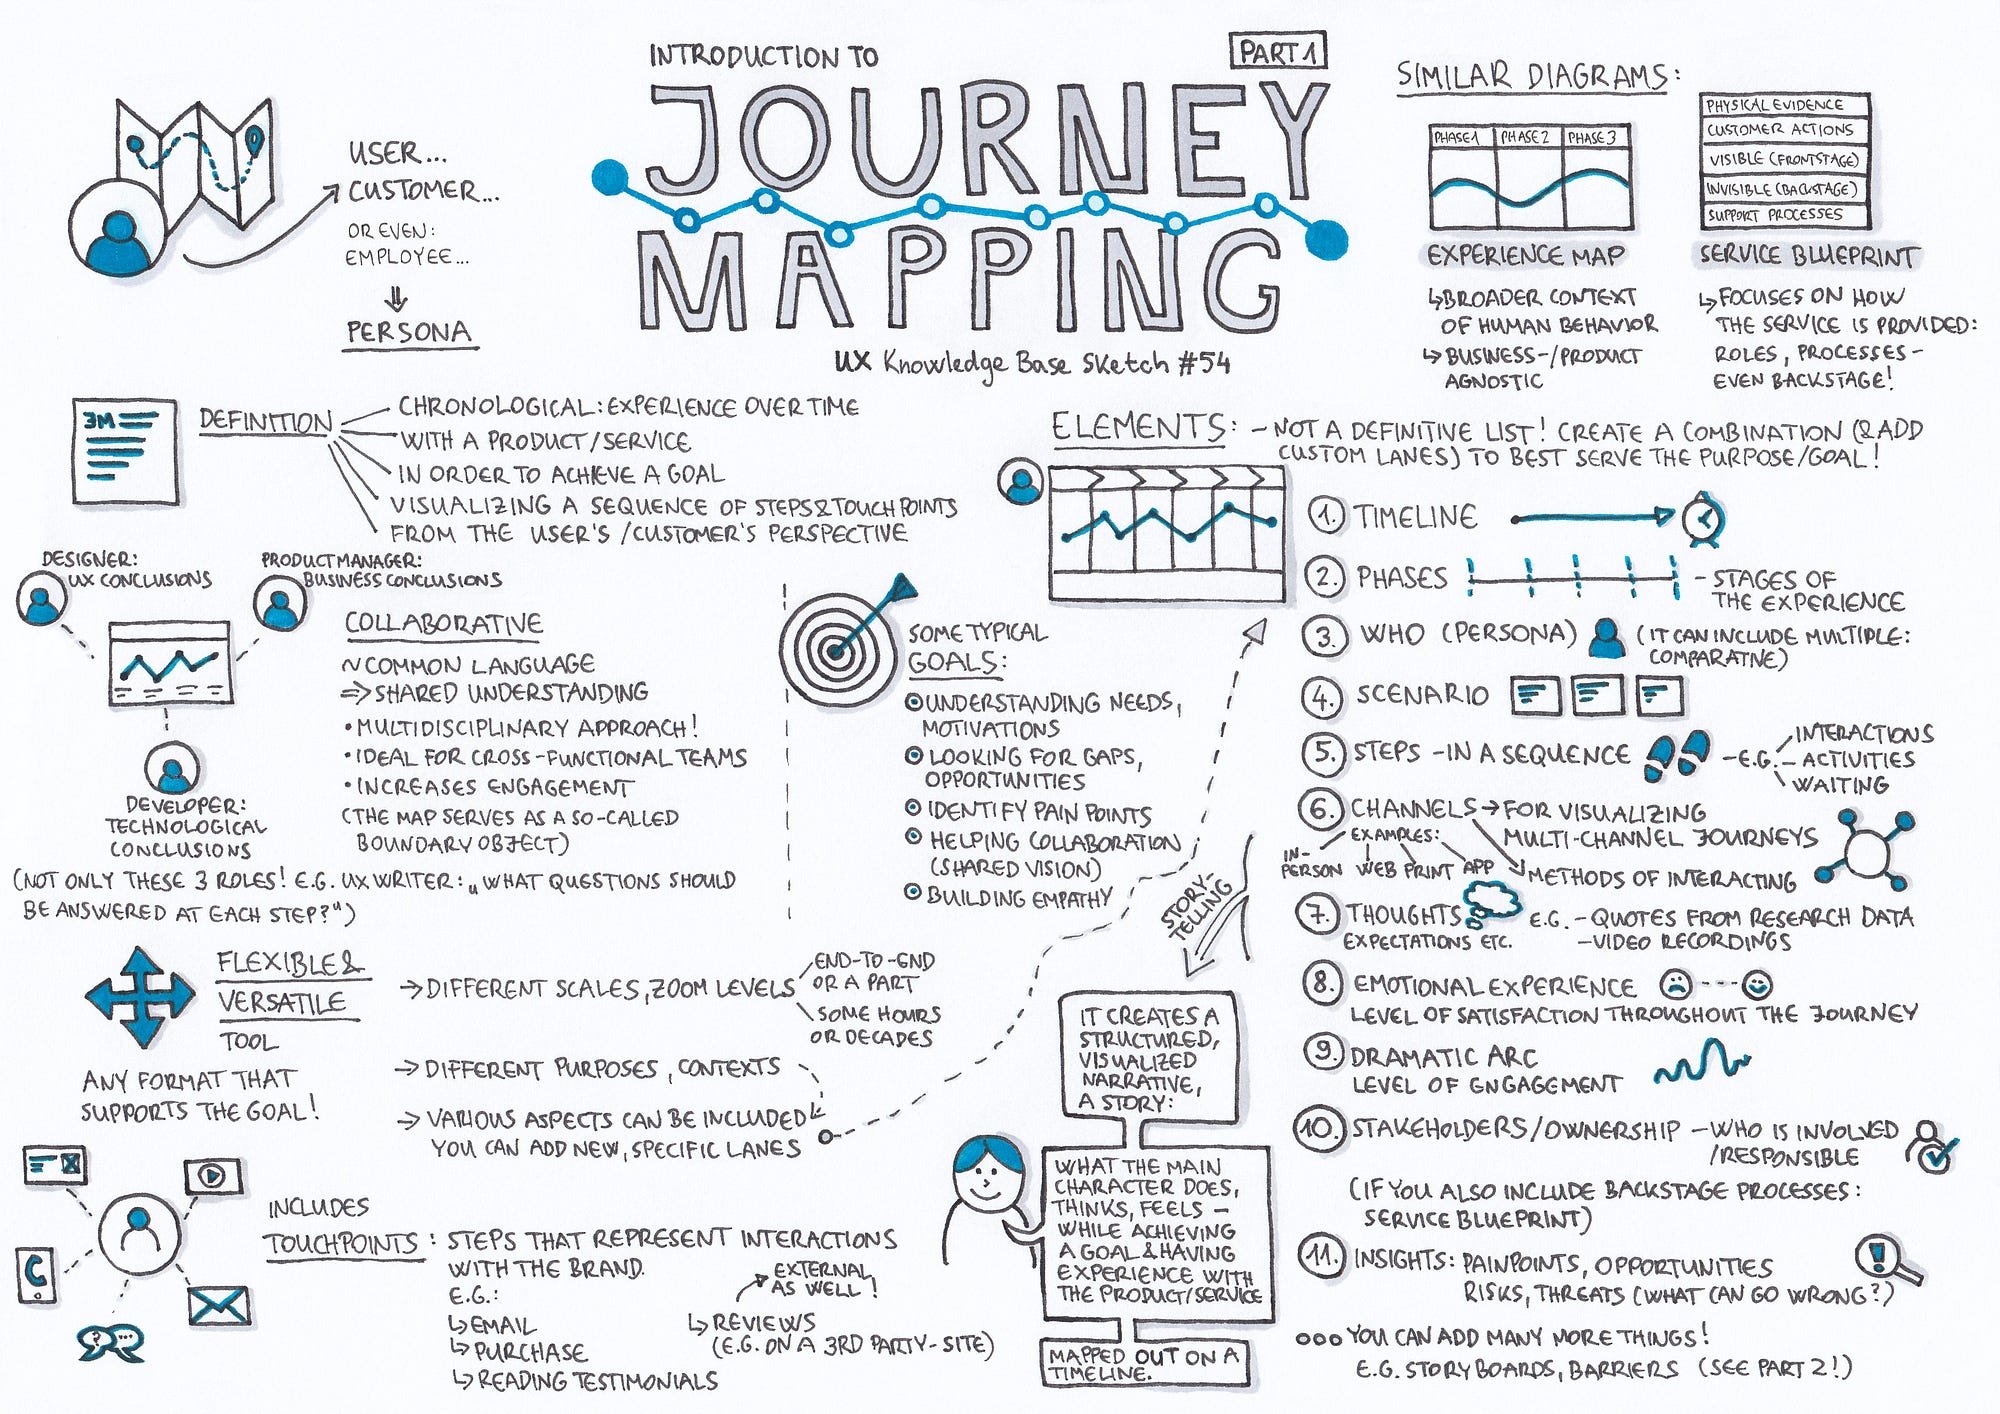 INTRODUCTION TO
PART 1
JOURNEY
MAPPING
UX Knowledge Base Sketch #54
USER...
CUSTOMER...
OR EVEN:
EMPLOYEE...
⇓
PERSONA
SIMILAR DIAGRAMS:
PHASE1 PHASE 2 PHASE 3
EXPERIENCE MAP
↳BROADER CONTEXT
OF HUMAN BEHAVIOR
↳BUSINESS-/PRODUCT
AGNOSTIC
PHYSICAL EVIDENCE
CUSTOMER ACTIONS
VISIBLE (FRONTSTAGE)
INVISIBLE (BACKSTAGE)
SUPPORT PROCESSES
SERVICE BLUEPRINT
↳FOCUSES ON HOW
THE SERVICE IS PROVIDED:
ROLES, PROCESSES-
EVEN BACKSTAGE!
DEFINITION
CHRONOLOGICAL: EXPERIENCE OVER TIME
WITH A PRODUCT/SERVICE
IN ORDER TO ACHIEVE A GOAL
VISUALIZING A SEQUENCE OF STEPS & TOUCHPOINTS
FROM THE USER'S /CUSTOMER'S PERSPECTIVE
DESIGNER:
UX CONCLUSIONS
PRODUCT MANAGER:
BUSINESS CONCLUSIONS
DEVELOPER:
TECHNOLOGICAL
CONCLUSIONS
COLLABORATIVE
~COMMON LANGUAGE
⇒SHARED UNDERSTANDING
• MULTIDISCIPLINARY APPROACH!
• IDEAL FOR CROSS-FUNCTIONAL TEAMS
• INCREASES ENGAGEMENT
(THE MAP SERVES AS A SO-CALLED
BOUNDARY OBJECT)
(NOT ONLY THESE 3 ROLES! E.G. UX WRITER: „WHAT QUESTIONS SHOULD
BE ANSWERED AT EACH STEP?")
SOME TYPICAL
GOALS:
UNDERSTANDING NEEDS,
MOTIVATIONS
LOOKING FOR GAPS,
OPPORTUNITIES
IDENTIFY PAIN POINTS
HELPING COLLABORATION
(SHARED VISION)
BUILDING EMPATHY
FLEXIBLE &
VERSATILE
TOOL
ANY FORMAT THAT
SUPPORTS THE GOAL!
→DIFFERENT SCALES, ZOOM LEVELS
END-TO-END
OR A PART
SOME HOURS
OR DECADES
→DIFFERENT PURPOSES, CONTEXTS
→VARIOUS ASPECTS CAN BE INCLUDED
YOU CAN ADD NEW, SPECIFIC LANES
INCLUDES
TOUCHPOINTS: STEPS THAT REPRESENT INTERACTIONS
WITH THE BRAND.
E.G.:
↳EMAIL
↳PURCHASE
↳READING TESTIMONIALS
EXTERNAL
AS WELL!
↳REVIEWS
(E.G. ON A 3RD PARTY-SITE)
STORY-
TELLING
IT CREATES A
STRUCTURED,
VISUALIZED
NARRATIVE,
A STORY:
WHAT THE MAIN
CHARACTER DOES,
THINKS, FEELS -
WHILE ACHIEVING
A GOAL & HAVING
EXPERIENCE WITH
THE PRODUCT/SERVICE
MAPPED OUT ON A
TIMELINE.
ELEMENTS: - NOT A DEFINITIVE LIST! CREATE A COMBINATION (& ADD
CUSTOM LANES) TO BEST SERVE THE PURPOSE/GOAL!
1. TIMELINE
2. PHASES - STAGES OF
THE EXPERIENCE
3. WHO (PERSONA) (IT CAN INCLUDE MULTIPLE:
COMPARATIVE)
4. SCENARIO
5. STEPS -IN A SEQUENCE -E.G.
INTERACTIONS
ACTIVITIES
WAITING
6. CHANNELS→FOR VISUALIZING
MULTI-CHANNEL JOURNEYS
EXAMPLES:
IN-
PERSON WEB PRINT APP
METHODS OF INTERACTING
7. THOUGHTS E.G. - QUOTES FROM RESEARCH DATA
EXPECTATIONS ETC. -VIDEO RECORDINGS
8. EMOTIONAL EXPERIENCE
LEVEL OF SATISFACTION THROUGHOUT THE JOURNEY
9. DRAMATIC ARC
LEVEL OF ENGAGEMENT
10. STAKEHOLDERS/OWNERSHIP - WHO IS INVOLVED
/RESPONSIBLE
(IF YOU ALSO INCLUDE BACKSTAGE PROCESSES:
SERVICE BLUEPRINT)
11. INSIGHTS: PAINPOINTS, OPPORTUNITIES
RISKS, THREATS (WHAT CAN GO WRONG?)
ooo YOU CAN ADD MANY MORE THINGS!
E.G. STORYBOARDS, BARRIERS (SEE PART 2!)